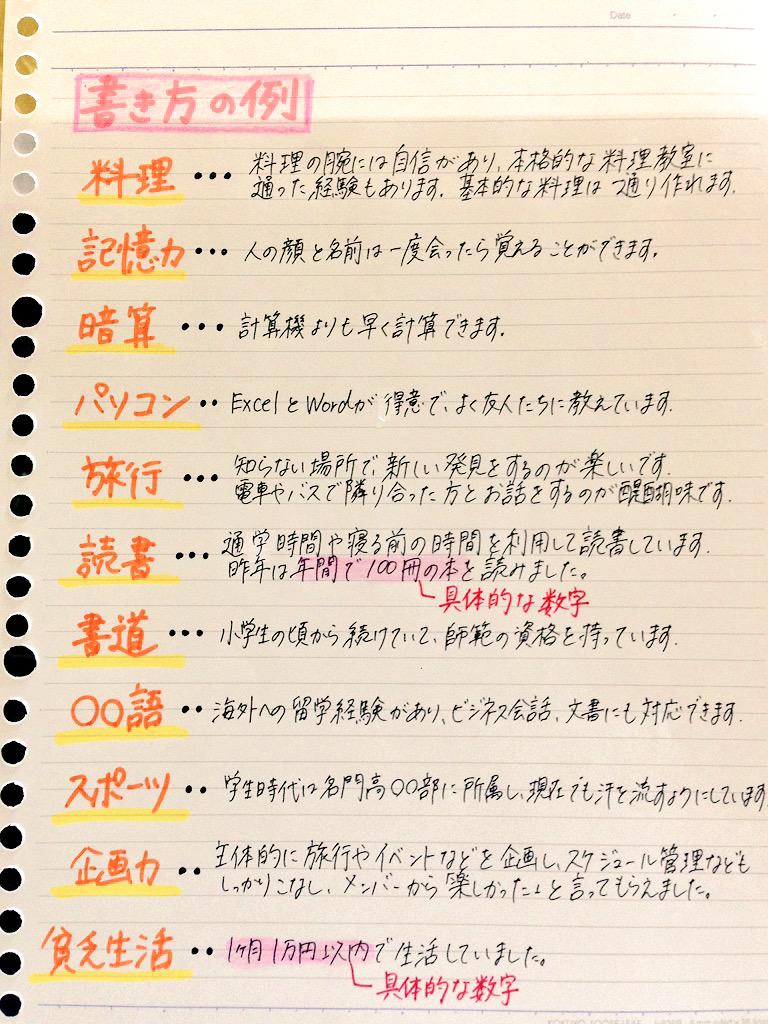 Date
書き方の例
料理・・・料理の腕には自信があり、本格的な料理教室に
通った経験もあります。基本的な料理は一通り作れます。
記憶力・・・人の顔と名前は一度会ったら覚えることができます。
暗算・・・計算機よりも早く計算できます。
パソコン・・ExcelとWordが得意で、よく友人たちに教えています。
旅行・・・知らない場所で、新しい発見をするのが楽しいです。
電車やバスで隣り合った方とお話をするのが醍醐味です。
読書・・・通学時間や寝る前の時間を利用して読書しています。
昨年は年間で100冊の本を読みました。
具体的な数字
書道・・・小学生の頃から続けていて、師範の資格を持っています。
〇〇語・・海外への留学経験があり、ビジネス会話、文書にも対応できます。
スポーツ・・学生時代は名門高〇〇部に所属し、現在でも汗を流すようにしています
企画力・・主体的に旅行やイベントなどを企画し、スケジュール管理なども
しっかりこなし、メンバーから「楽しかった」と言ってもらえました。
貧乏生活・・1ヶ月1万円以内で生活していました。
具体的な数字